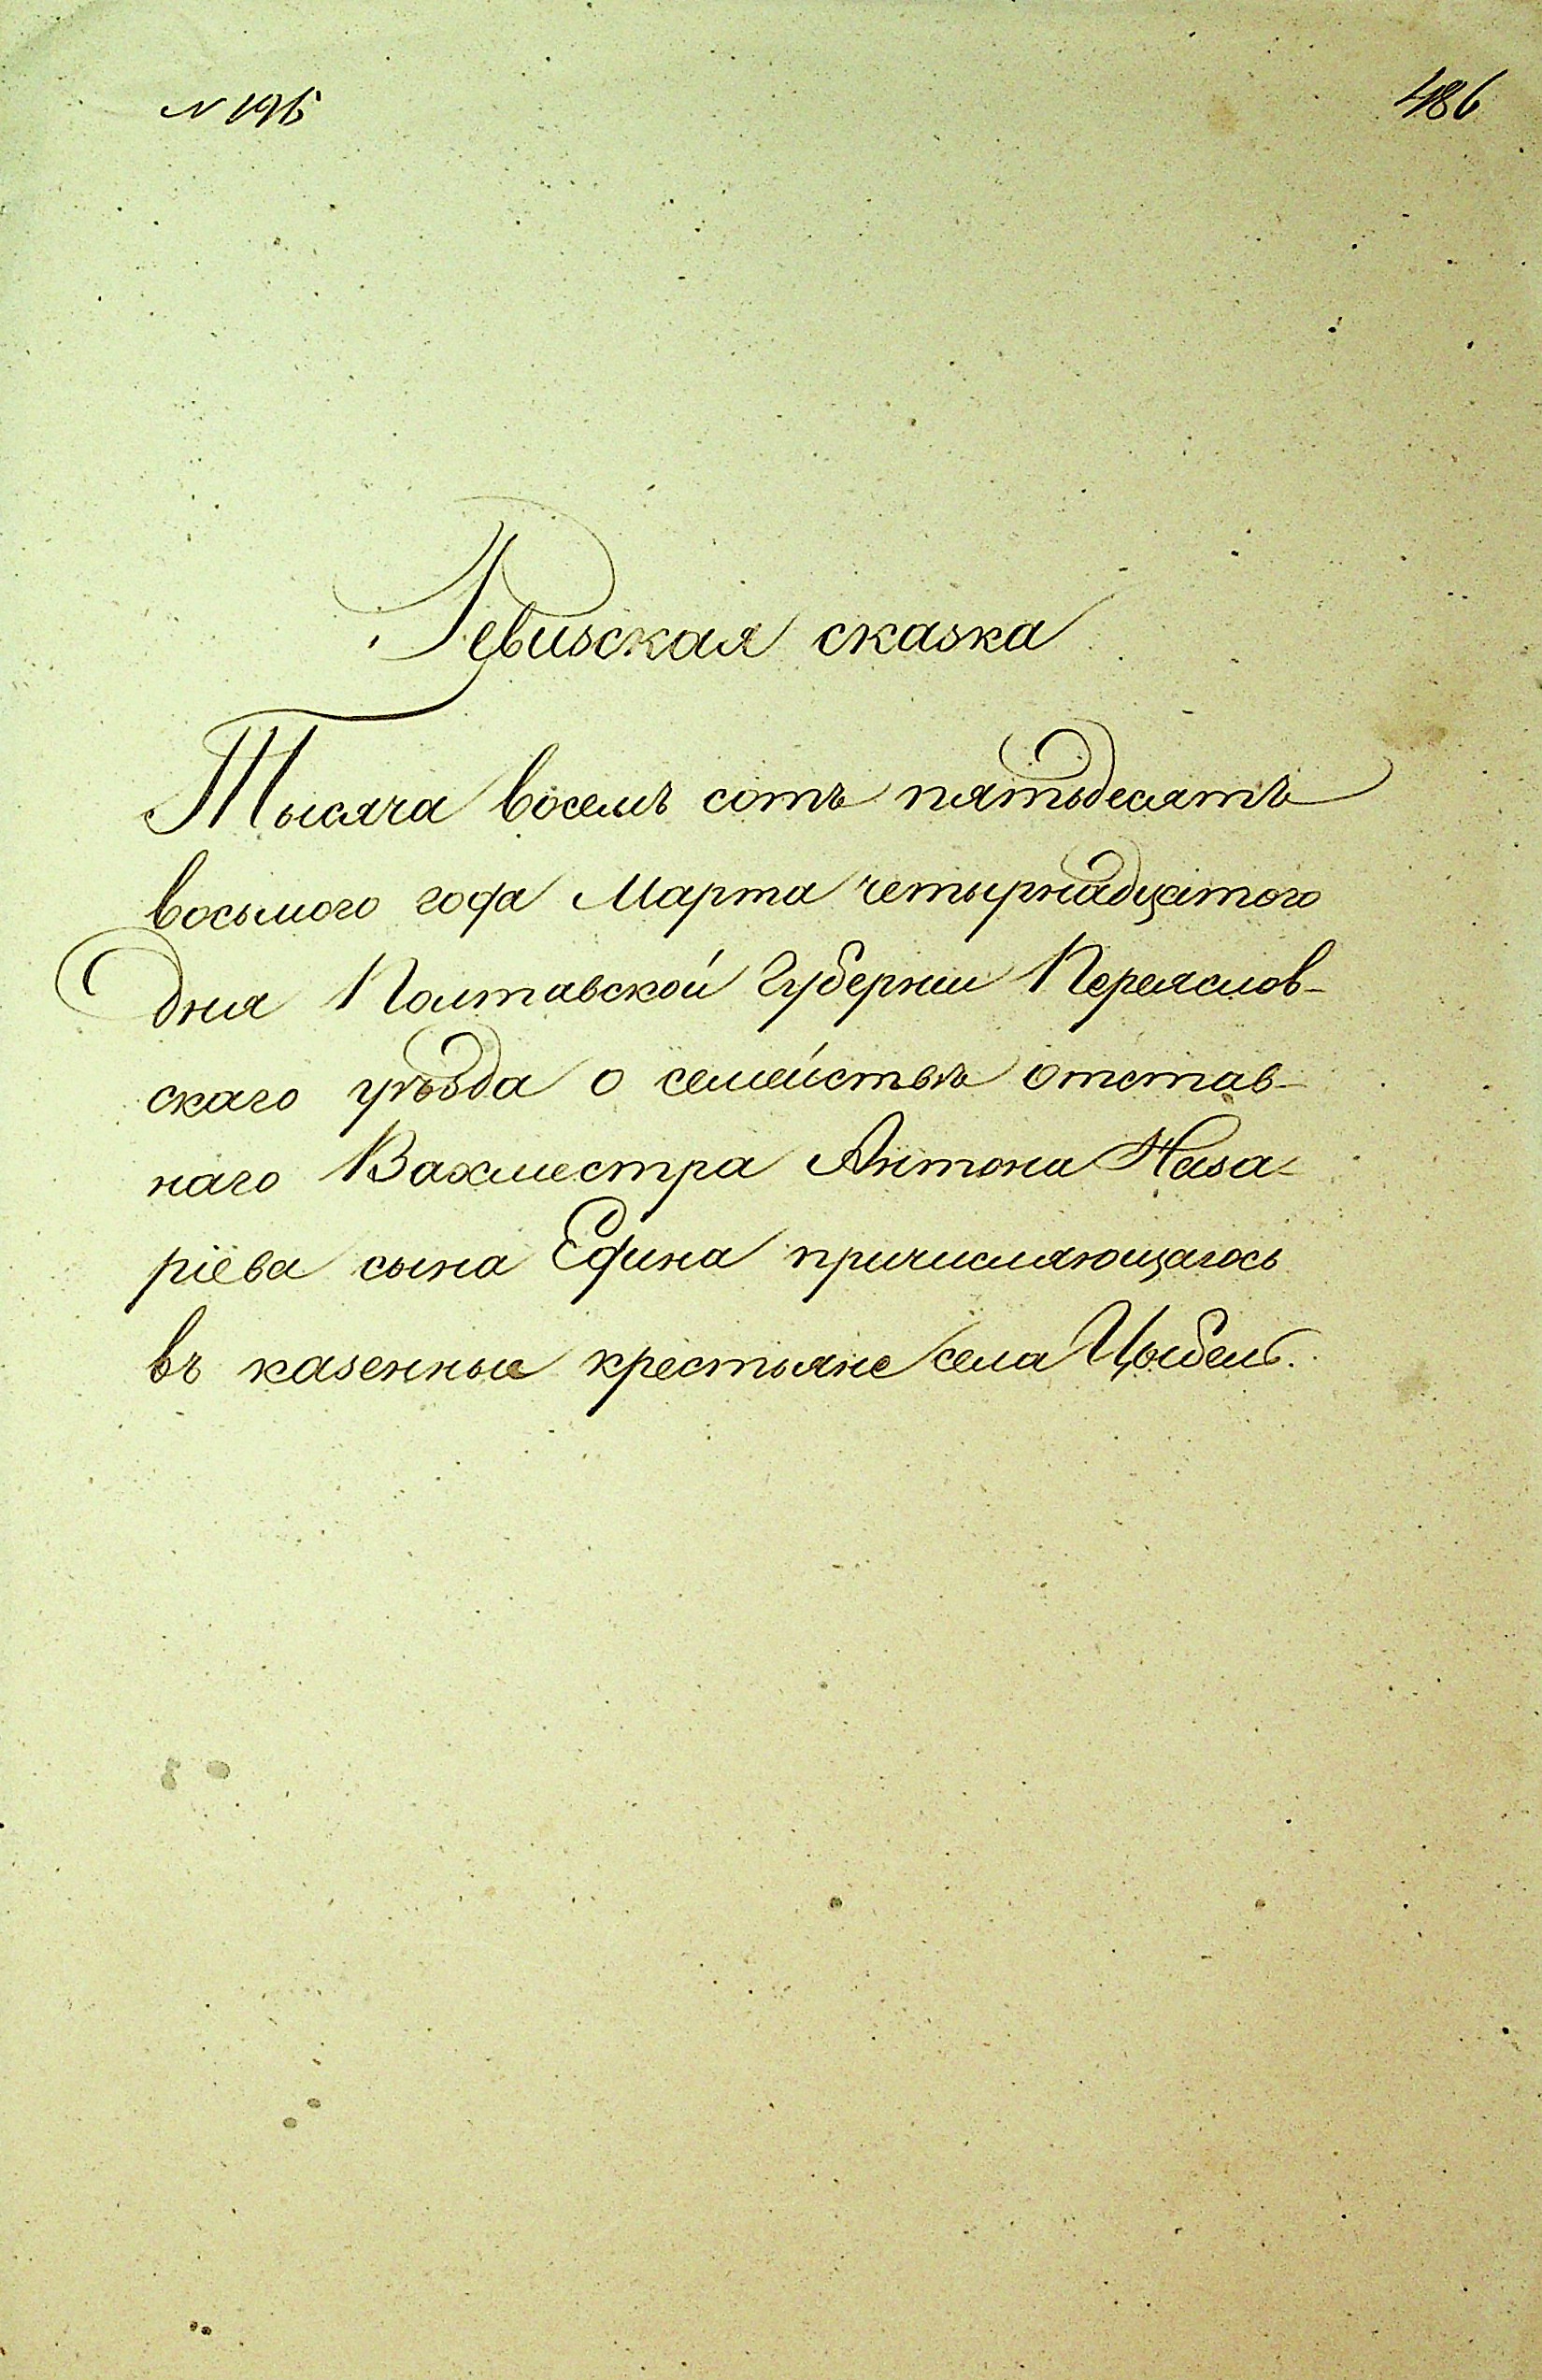 N 195
486
Ревизская сказка
Тысяча восемь сотъ пятьдесятъ
восьмого года Марта четырнадцатого
дня Полтавской Губернии Переяслов-
скаго уѣзда о семействѣ отстав-
наго Вахмистра Антона Наза-
ріева сына Едина причисляющагось
въ казенные крестьяне села Цыбель.